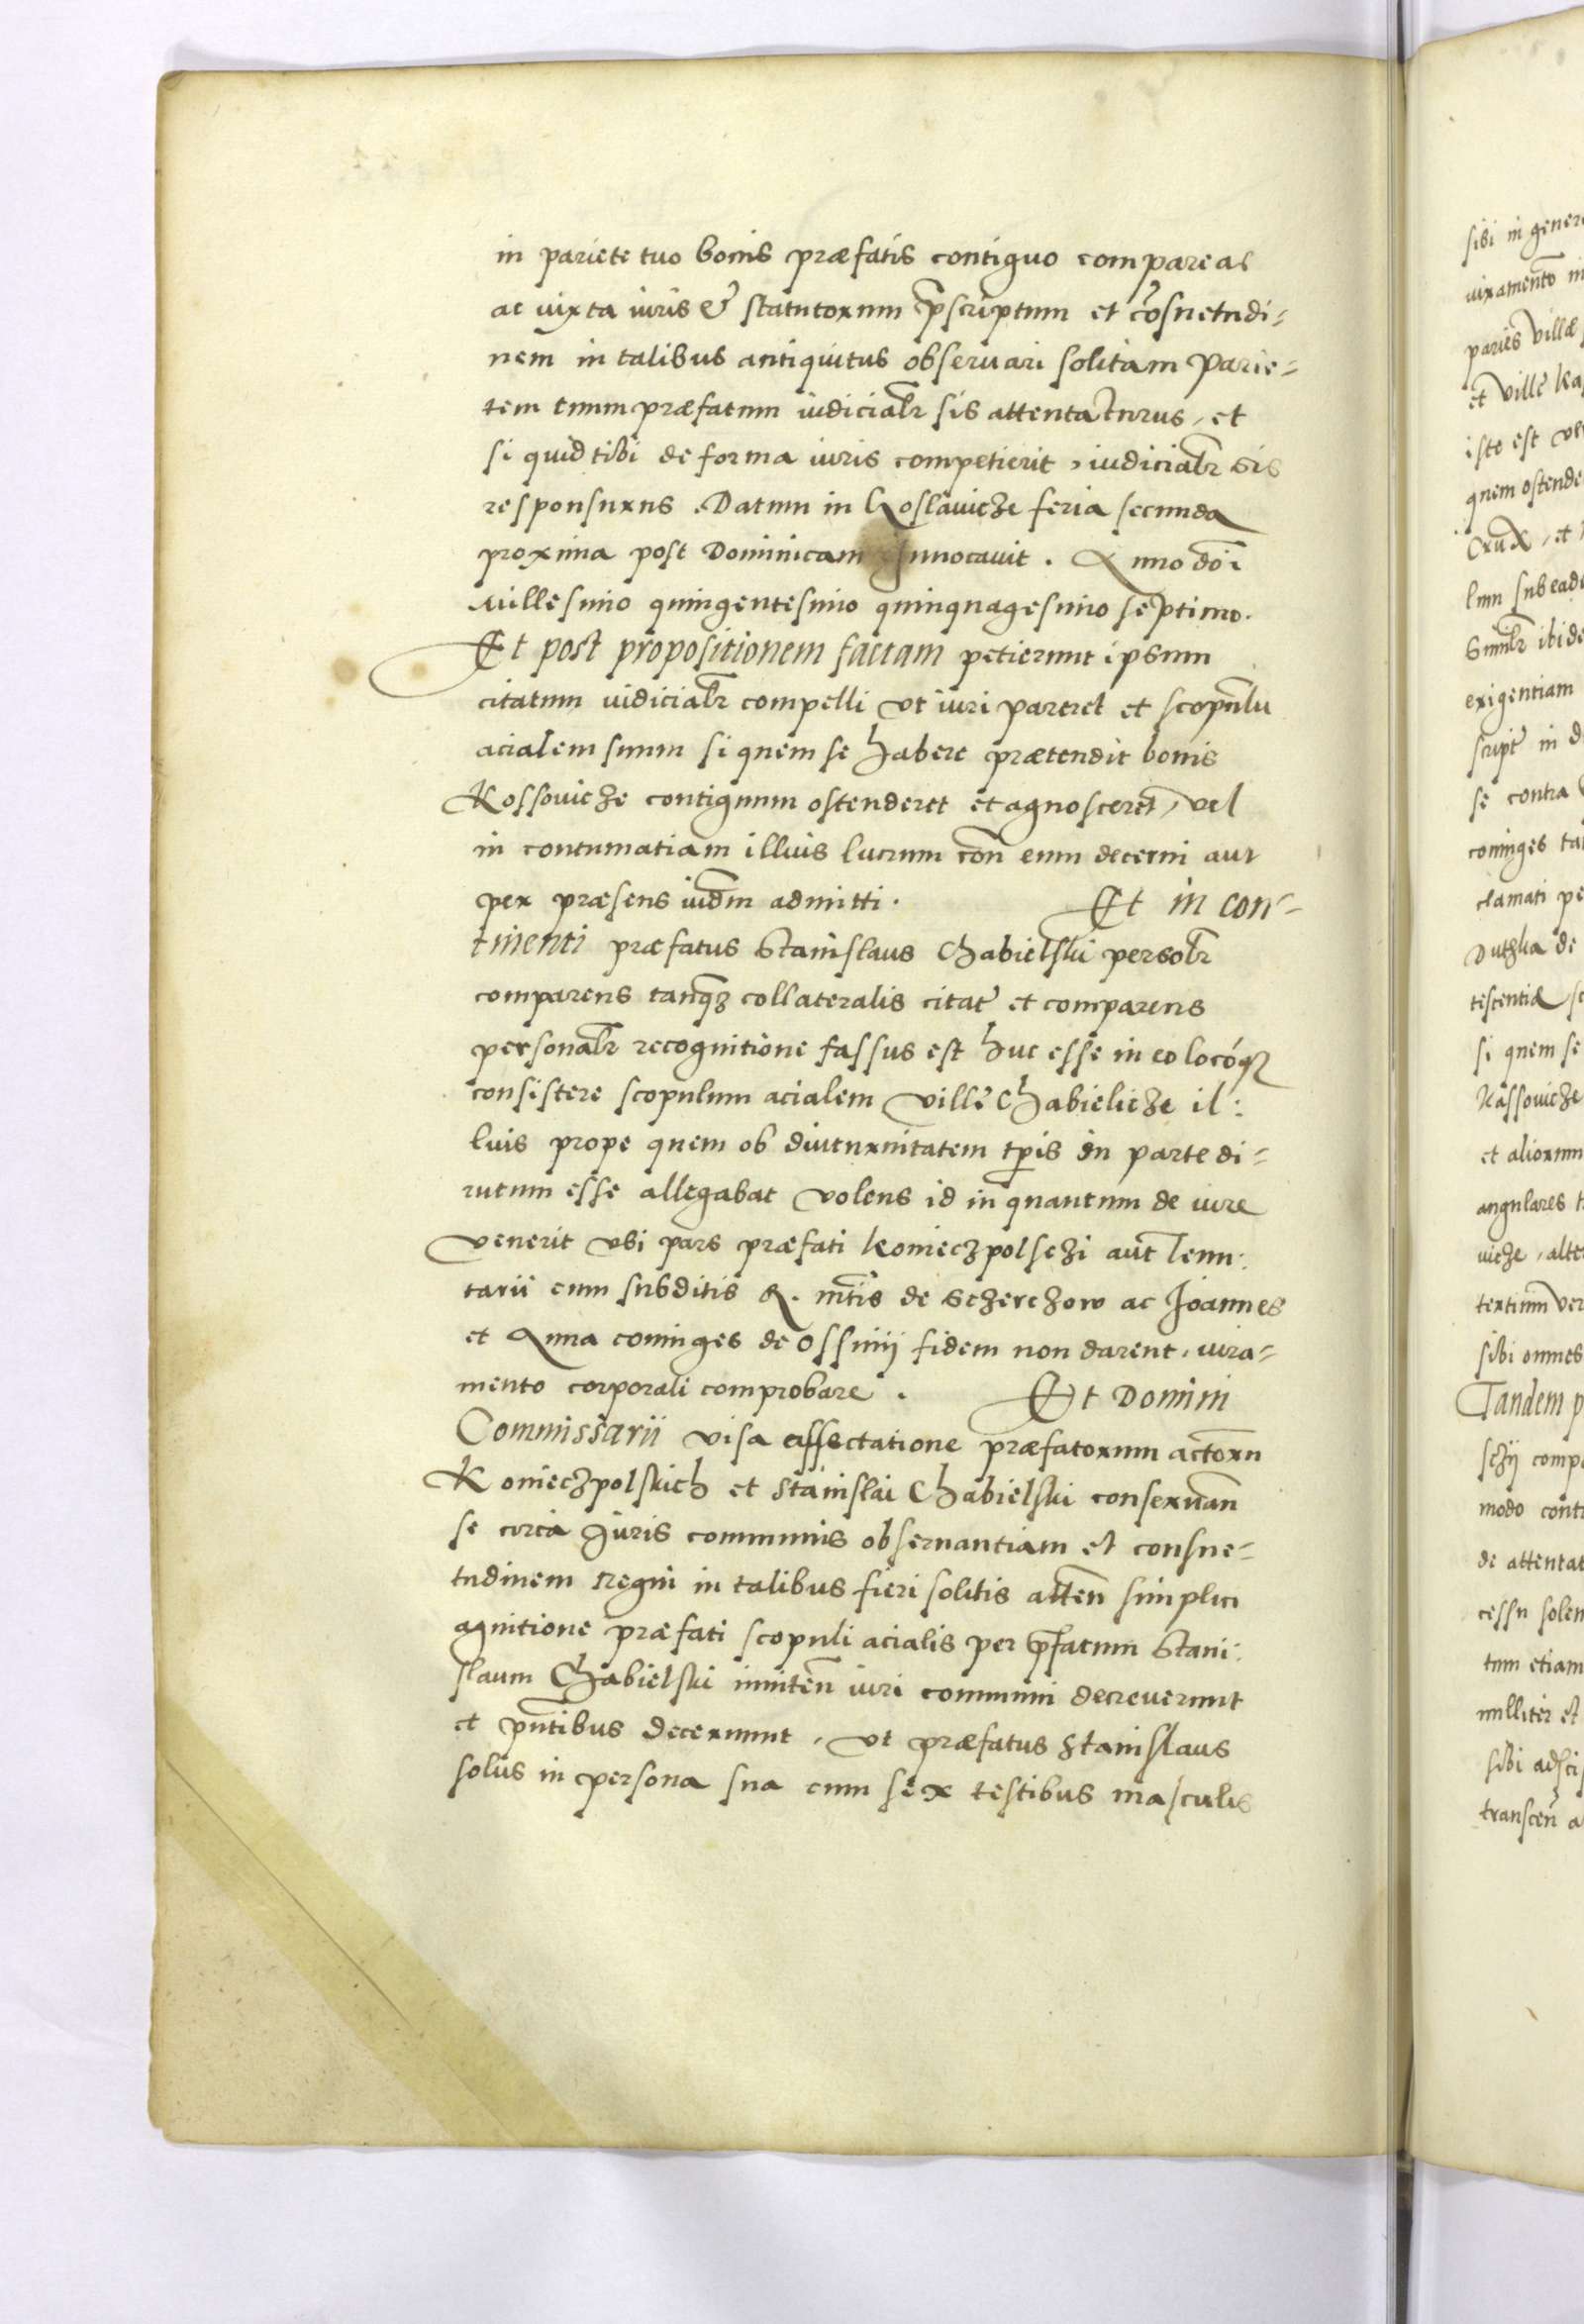 in pariete tuo bonis præfatis contiguo compareas
ac iuxta iuris & statutorum p̄scriptum et cōsuetudi=
nem in talibus antiquitus observari solitam parie=
tem tuum præfatum iudicialr sis attentaturus, et
si quid tibi de forma iuris competierit, iudicialr sis
responsurus. Datum in Koslawicze feria secunda
proxima post Dominicam Innocavit. Anno dōi
millesimo quingentesimo quinquagesimo septimo.
Et post propositionem factam petierunt ipsum
citatum iudicialr compelli vt iuri pareret et scopulū
acialem suum si quem se habere prætendit bonis
Kossovicze contiguum ostenderet et agnosceret, vel
in contumatiam illius lucrum con̄ eum decerni aut
per præsens iud̄m admitti. Et in con=
tinenti præfatus Stanislaus Chabielski persolr
comparens tanq̄ȝ collateralis citat9 et comparens
personalr recognitione fassus est huc esse in eo locóqȝ
consistere scopulum acialem villę Chabielicze il:
lius prope quem ob diuturnitatem tp̄is in parte di=
rutum esse allegabat volens id in quantum de iure
venerit vbi pars præfati Konieczpolsczi aut tenu:
tarii cum subditis R. mt̄is de Sczerczow ac Joannes
et Anna coniuges de Ossiny fidem non darent, iura=
mento corporali comprobare. Et Domini
Commissarii visa affectatione præfatorum actor̄u
Koniecżpolskich et Stanislai Chabielski conseruan̄
se circa Juris communis obseruantiam et consue=
tudinem regni in talibus fieri solitis atten̄ simplici
agnitione præfati scopuli acialis per p̄fatum Stani:
slaum Chabielski inniten̄ iuri communi decreverunt
et pn̄tibus decernunt, vt præfatus Stanislaus
solus in persona sua cum sex testibus masculis
sibi in gener
iuramento in
paries villæ
et villę
iste est
quem ostende
Crux, et
lum sub ead
Similr ibide
exigentiam
script9 in
se contra
coniuges
clamati pe
de
si quem se
Kassovicze
et aliorum
angulares
uicze, alte
sibi omnes
Tandem p
sczij comp
modo cont
de attentat
cessu solen
tum etiam
nulliter et
sibi
transcen̄ a